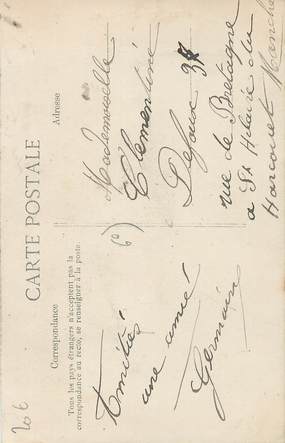 CARTE POSTALE
Correspondance
Tous les pays étrangers n'acceptent pas la
correspondance au recto, se renseigner à la poste.
Amitiés
une amie!
Germain
Adresse
Mademoiselle
Clémentine
37
rue de Bretagne
a St Hilaire du
Harcouet Manche